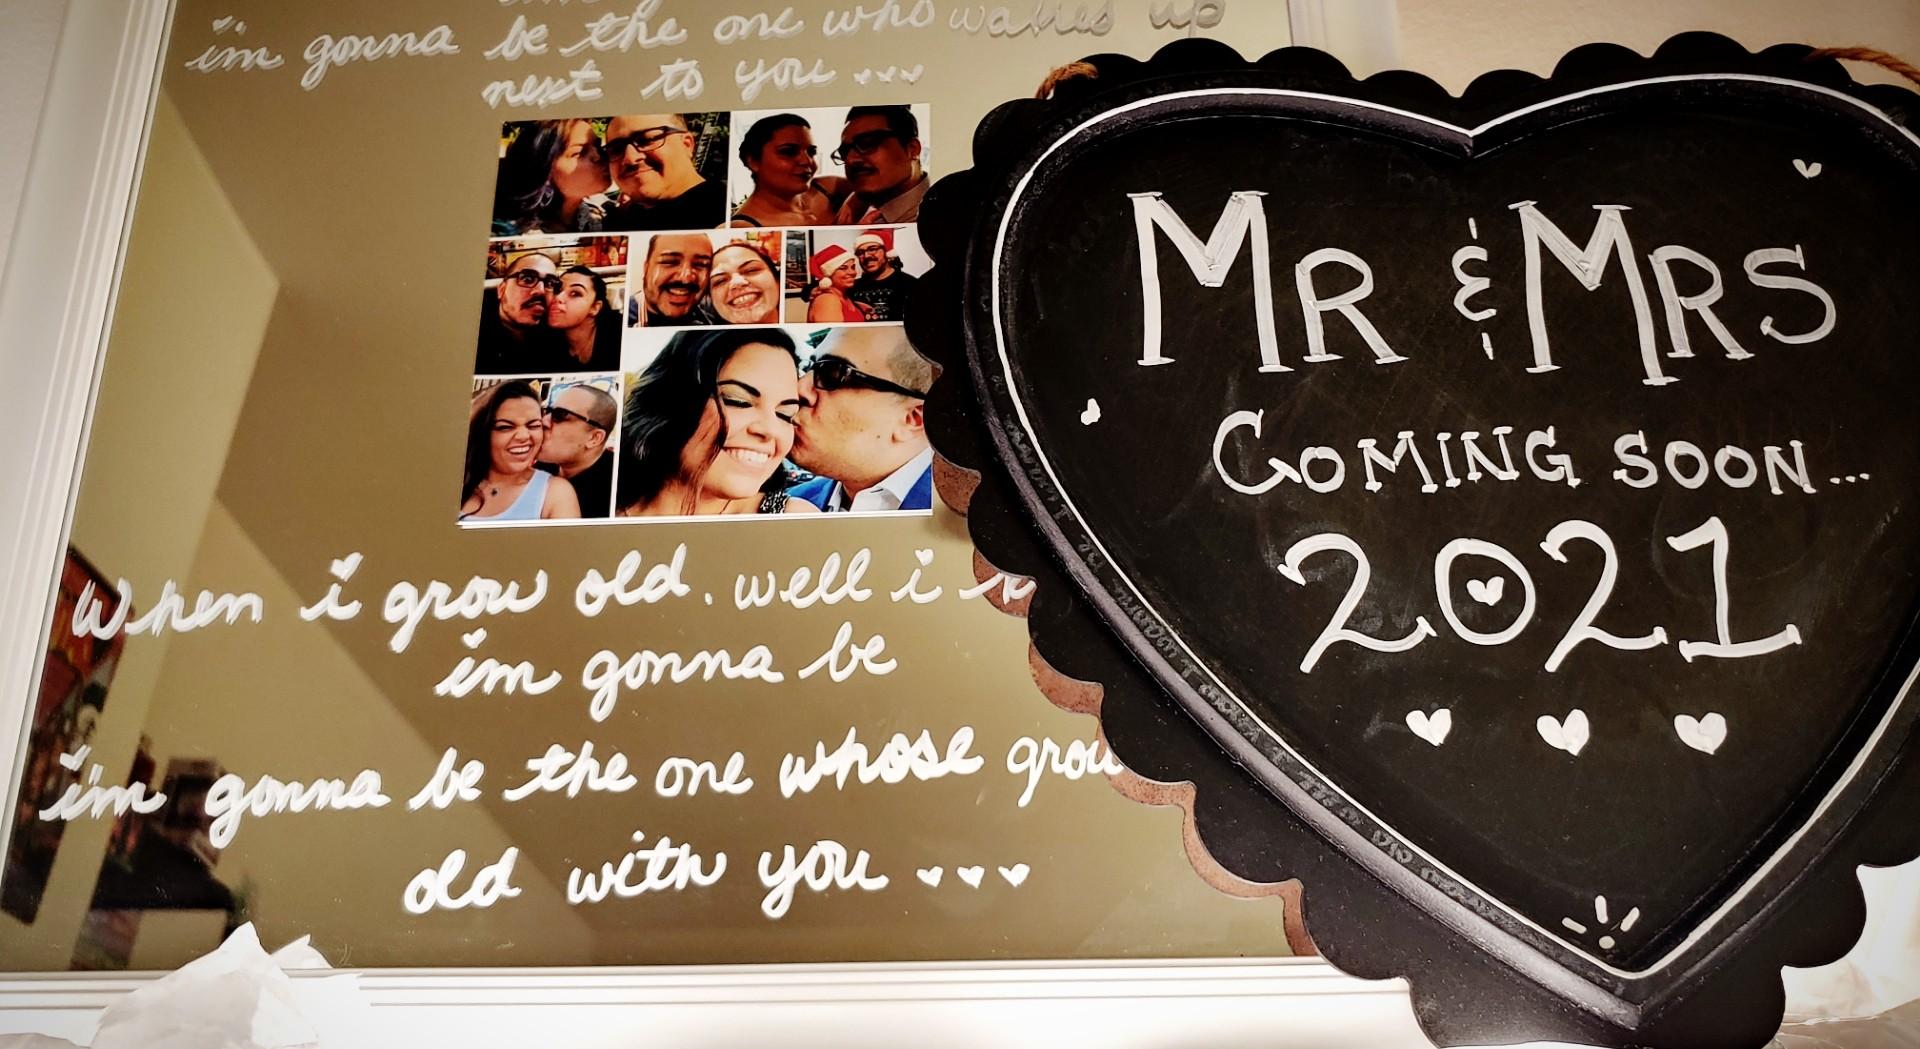 im gonna be the one who wakes up
next to you ...
When i grow old. well i
im gonna be
im gonna be the one whose grow
old with you ...
Mr & Mrs
Coming soon...
2021